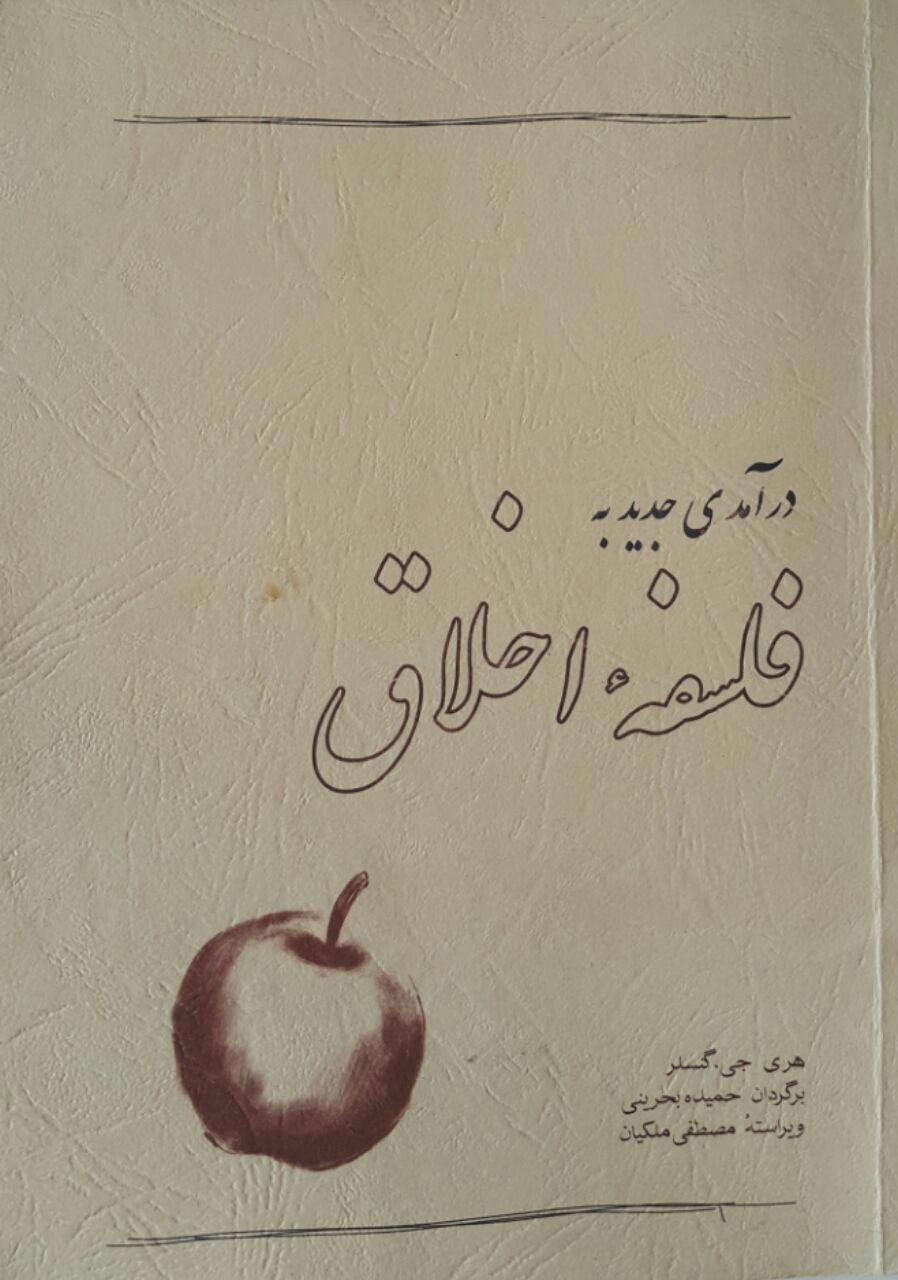 درآمدی جدید به
فلسفهٔ اخلاق
هری جی. گنسلر
برگردان حمیده بحرینی
ویراستهٔ مصطفی ملکیان